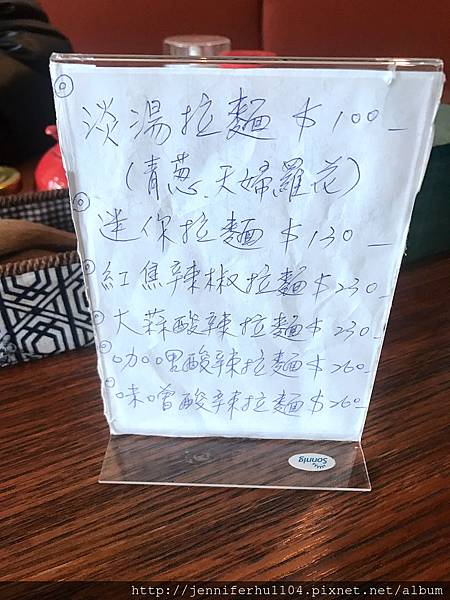 ◎淡湯拉麵 $100-
(青蔥、天婦羅花)
◎迷你拉麵 $130-
◎紅焦辣椒拉麵 $230-
◎大蒜酸辣拉麵 $230-
◎咖哩酸辣拉麵 $260-
◎味噌酸辣拉麵 $260-
Sonnig
http://jenniferhu1104.pixnet.net/album